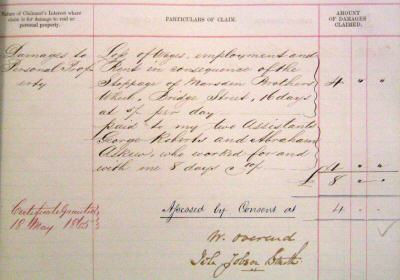 Nature of Claimant's Interest where
claim is for damage to real or
personal property.
PARTICULARS OF CLAIM.
AMOUNT
OF DAMAGES
CLAIMED.
Damages to
Personal Prop
erty
Loss of Wages, employment and
Rent in consequence of the
Stoppage of Marsden Brothers
Wheel, Bridge Street, 16 days
at 5/ per day
4 " "
paid to my two Assistants
George Roberts and Abraham
Askew, who worked for and
with me 8 days
4 " "
£ 8 " "
Certificate Granted
18 May 1865
Assessed by Consent at
4 - -
W. Overend
John Jobson Smith